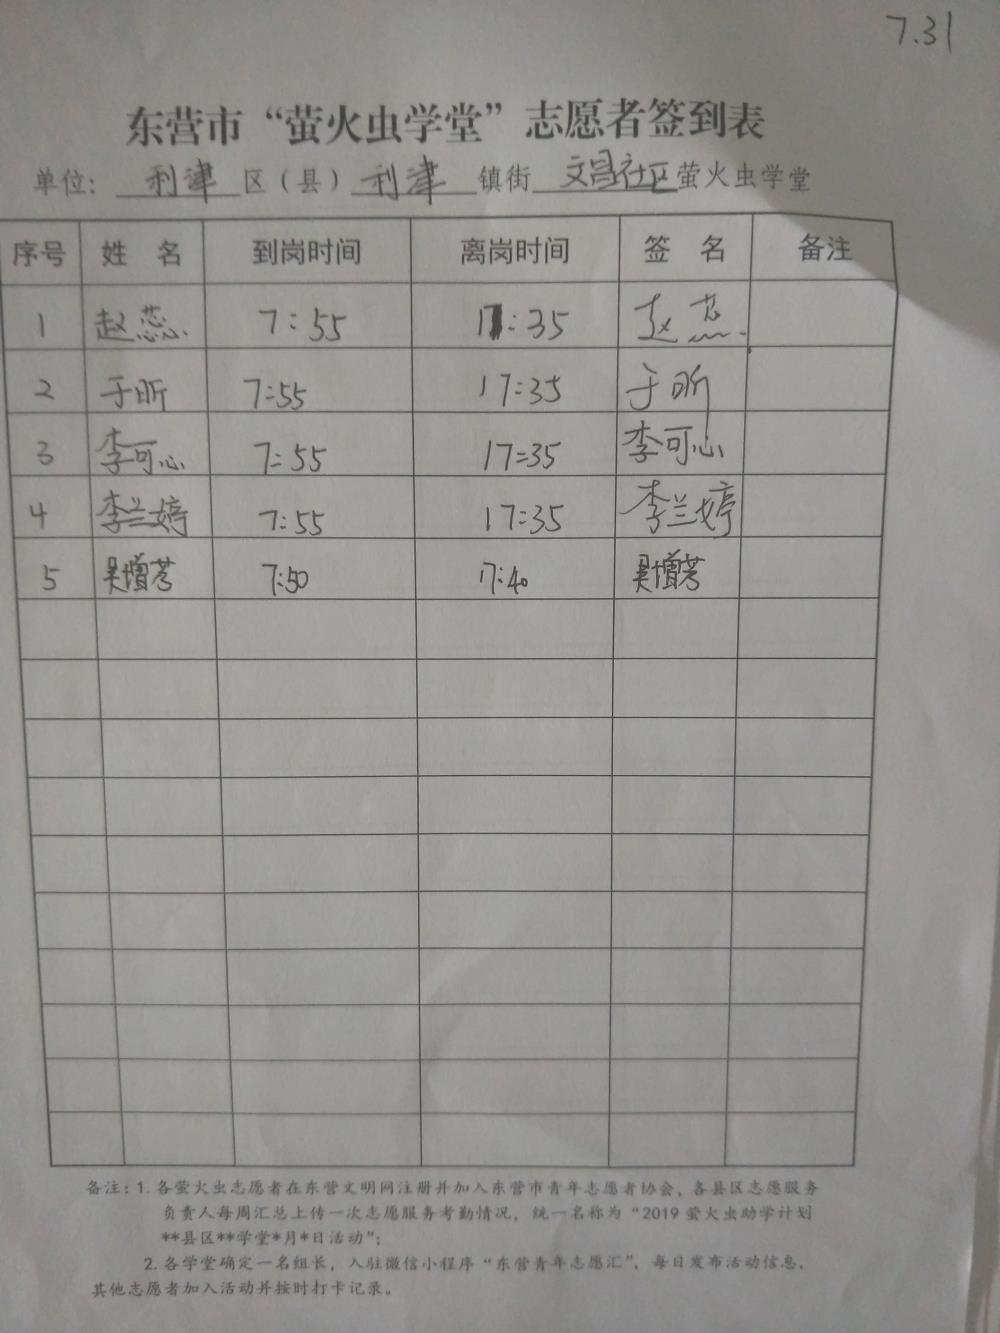 7.31
东营市“萤火虫学堂”志愿者签到表
单位：利津区（县）利津镇街文昌社区萤火虫学堂
序号 姓 名 到岗时间 离岗时间 签 名 备注
1 赵蕊 7:55 17:35 赵蕊
2 于昕 7:55 17:35 于昕
3 李可心 7:55 17:35 李可心
4 李兰婷 7:55 17:35 李兰婷
5 吴增芳 7:50 17:40 吴增芳
备注：1. 各萤火虫志愿者在东营文明网注册并加入东营市青年志愿者协会，各县区志愿服务
负责人每周汇总上传一次志愿服务考勤情况，统一名称为“2019 萤火虫助学计划
**县区**学堂*月*日活动”；
2. 各学堂确定一名组长，入驻微信小程序“东营青年志愿汇”，每日发布活动信息，
其他志愿者加入活动并按时打卡记录。